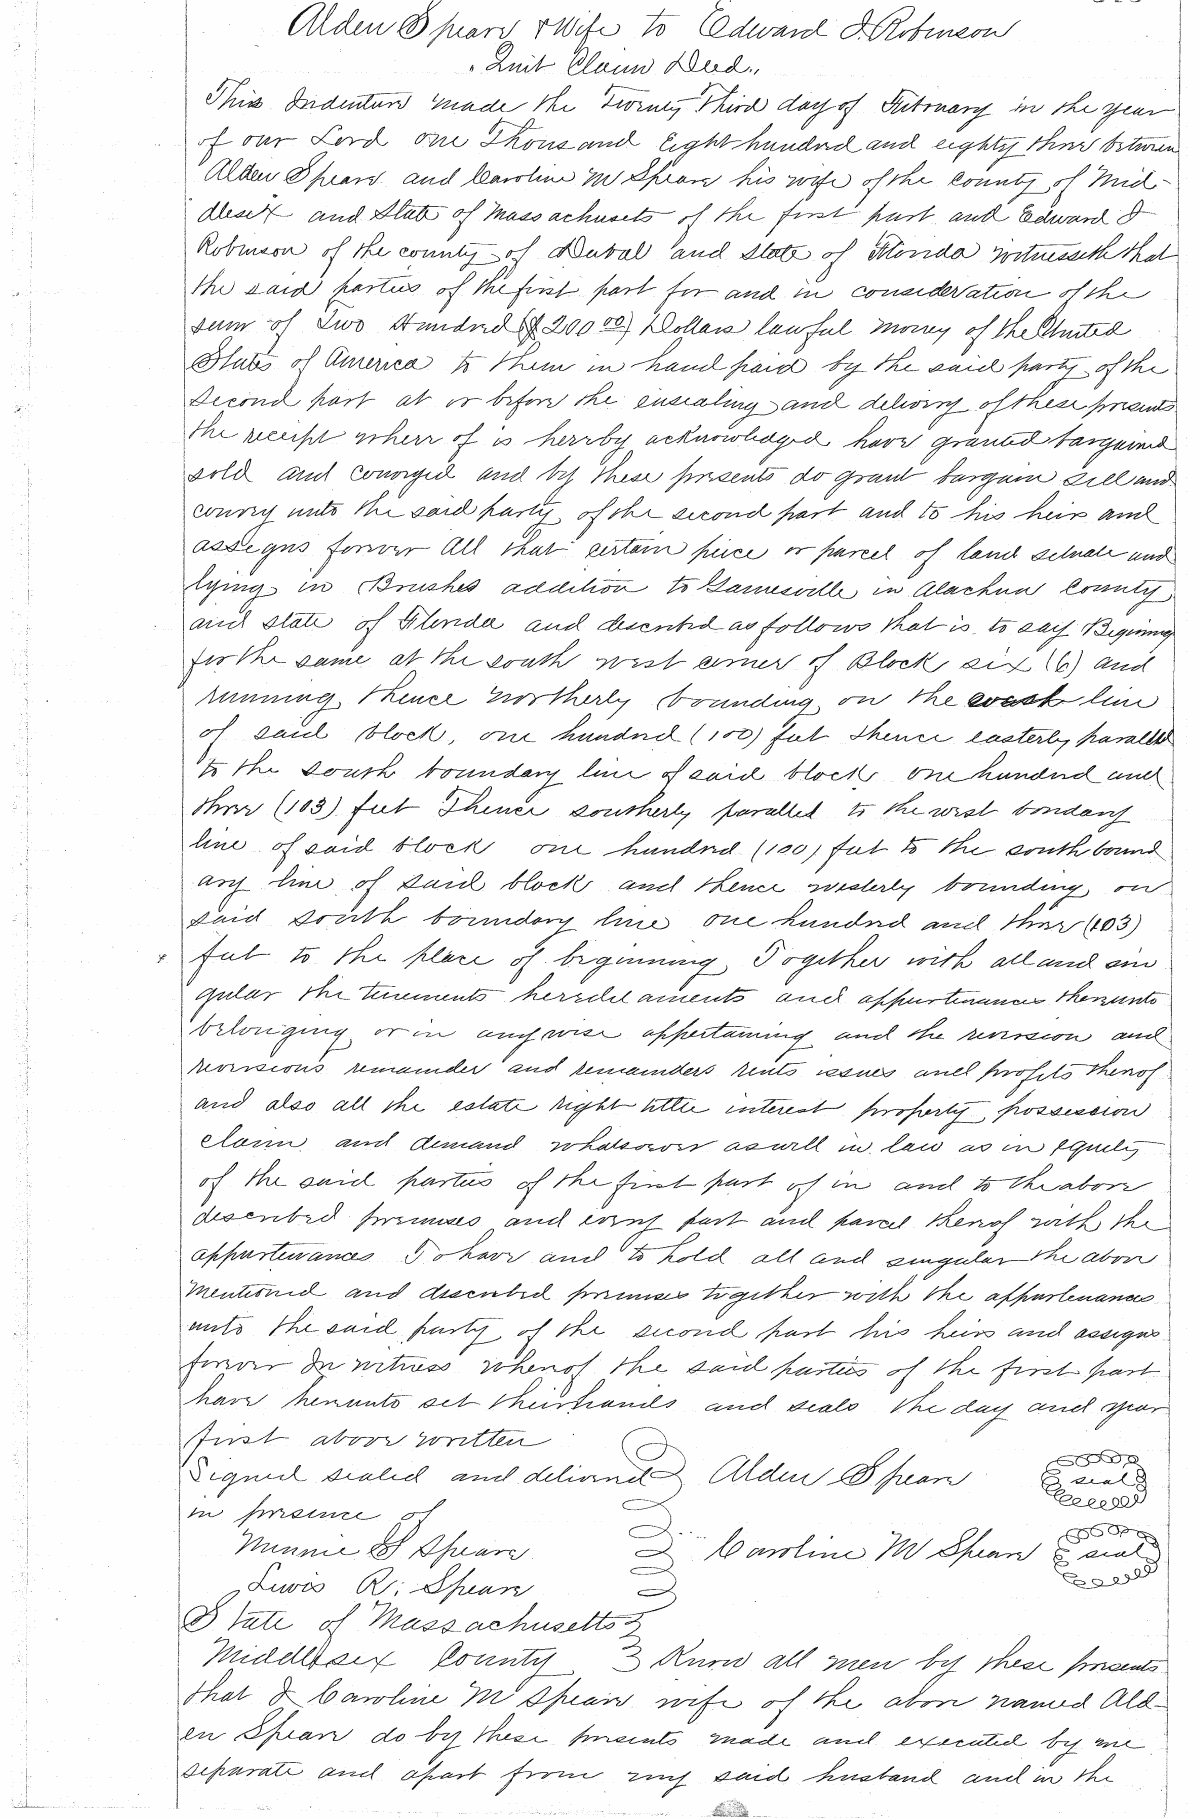 Alden Speare & Wife to Edward I. Robinson
"Quit Claim Deed"
This Indenture made the Twenty Third day of February in the year
of our Lord one Thousand Eight hundred and eighty three between
Alden Speare and Caroline M Speare his wife of the county of Mid-
dlesex and State of Massachusets of the first part and Edward I
Robinson of the county of Duval and State of Florida witnesseth that
the said parties of the first part for and in consideration of the
sum of Two Hundred ($200 00) Dollars lawful money of the United
States of America to them in hand paid by the said party of the
second part at or before the ensealing and delivery of these presents
the receipt where of is hereby acknowledged have granted bargained
sold and conveyed and by these presents do grant bargain sell and
convey unto the said party of the second part and to his heirs and
assigns forever All that certain piece or parcel of land situate and
lying in Brushes addition to Gainesville in Alachua County
and state of Florida and described as follows that is to say Begining
for the same at the south west corner of Block six (6) and
running thence northerly bounding on the west line
of said block, one hundred (100) feet thence easterly paralled
to the south boundary line of said block one hundred and
three (103) feet Thence southerly paralled to the west bondary
line of said block one hundred (100) feet to the south bound
ary line of said block and thence westerly bounding on
said south boundary line one hundred and three (103)
feet to the place of beginning Together with all and sin
gular the tenements heredetaments and appurtenances thereunto
belonging or in anywise appertaining and the reversion and
reversions remainder and remainders rents issues and profits thereof
and also all the estate right title interest property possession
claim and demand whatsoever as well in law as in equity
of the said parties of the first part of in and to the above
described premises and every part and parcel thereof with the
appurtenances To have and to hold all and singular the above
mentioned and described premises together with the appurtenances
unto the said party of the second part his heirs and assigns
forever In witness whereof the said parties of the first part
have hereunto set their hands and seals the day and year
first above written
Signed sealed and delivered Alden Speare seal
in presence of
Minnie S Speare Caroline M Speare seal
Lewis R. Speare
State of Massachusetts
Middlesex County Know all men by these presents
that I Caroline M Speare wife of the above named Ald-
en Speare do by these presents made and executed by me
separate and apart from my said husband and in the